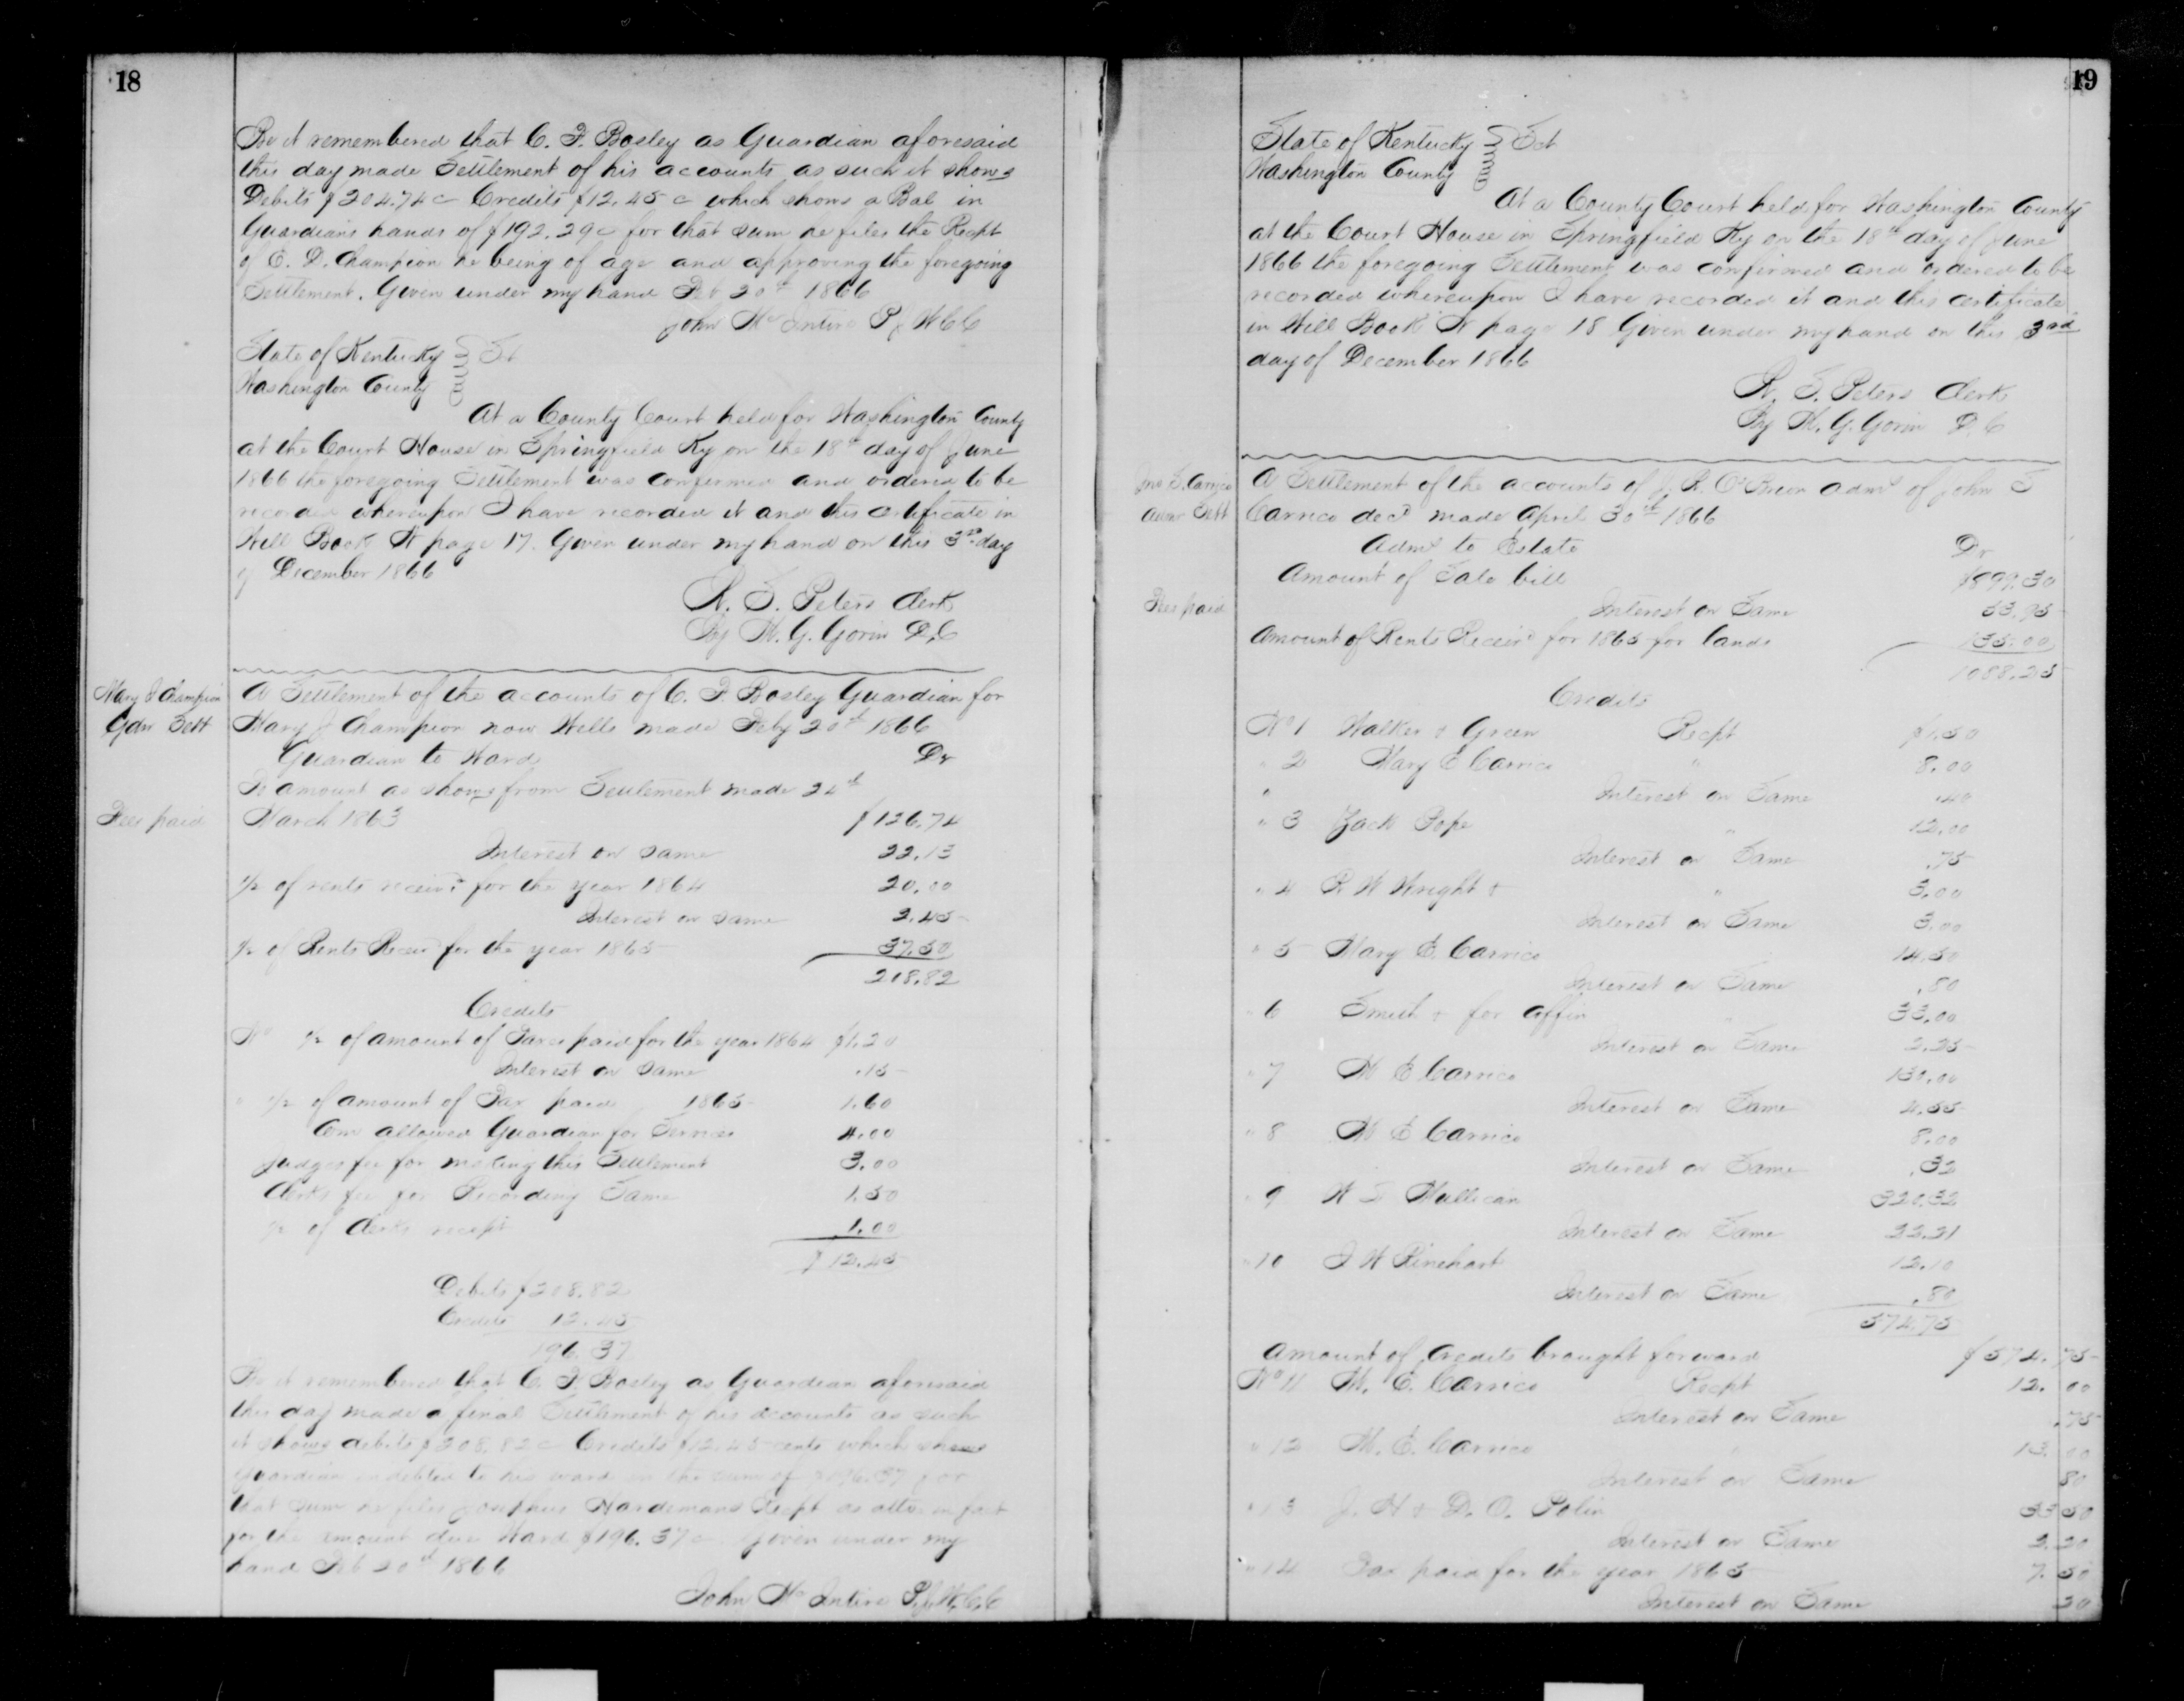 18
Be it remembered that C. F. Bosley as Guardian aforesaid
this day made Settlement of his accounts as such it shows
Debits $204.74c Credits $12.45c which shows a Bal in
Guardians hands of $192.29c for that sum he files the Recpt
of E. D. Champion he being of age and approving the foregoing
Settlement. Given under my hand Feb 20th 1866
John McIntire P J W C C
State of Kentucky } Sct
Washington County
At a County Court held for Washington County
at the Court House in Springfield Ky on the 18th day of June
1866 the foregoing Settlement was confirmed and ordered to be
recorded whereupon I have recorded it and this certificate in
Will Book N page 17. Given under my hand on this 3rd day
of December 1866
R. S. Peters Clerk
By W. G. Gorin D.C
Mary J Champion
Gdn Sett
A Settlement of the accounts of C. F. Bosley Guardian for
Mary J Champion now Wells made Feby 20th 1866
Guardian to Ward Dr
To amount as shows from Settlement made 24th
Fees paid
March 1863 $126.74
Interest on same 22.13
1/2 of rents receivd for the year 1864 20.00
Interest on same 2.45
1/2 of Rents Receivd for the year 1865 37.50
208.82
Credits
No 1/2 of amount of Taxes paid for the year 1864 $1.20
Interest on same .15
" 1/2 of amount of Tax paid 1865 1.60
Com allowed Guardian for Services 4.00
Judges fee for making this Settlement 3.00
Clerks fee for Recording Same 1.50
1/2 of Clerks recept 1.00
$12.45
Debits $208.82
Credits 12.45
196.37
Be it remembered that C. F. Bosley as Guardian aforesaid
this day made a final Settlement of his accounts as such
it shows debits $208.82c Credits $12.45 cents which shows
Guardian indebted to his ward in the sum of $196.37 for
that sum he files Josephus Hardemans Recpt as atto in fact
for the amount due Ward $196.37c Given under my
hand Feb 20th 1866
John McIntire P.J.W.C.C
19
State of Kentucky } Sct
Washington County
At a County Court held for Washington County
at the Court House in Springfield Ky on the 18th day of June
1866 the foregoing Settlement was confirmed and ordered to be
recorded whereupon I have recorded it and this certificate
in Will Book N page 18 Given under my hand on this 3rd
day of December 1866
R. S. Peters Clerk
By W. G. Gorin D. C
Jno S. Carrico
Admr Sett
A Settlement of the accounts of J. R. O'Brion Admr of John S
Carrico decd made April 30th 1866
Admr to Estate Dr
Amount of Sale bill $899.30
Fees paid
Interest on Same 53.95
Amount of Rents Receivd for 1865 for lands 135.00
1088.25
Credits
No 1 Walker & Green Recpt $1.50
" 2 Mary E Carrico " 8.00
" Interest on Same .40
" 3 Zack Pope " 12.00
Interest on Same .75
" 4 R W Wright & " 3.00
Interest on Same 3.00
" 5 Mary E. Carrico 14.50
Interest on Same .80
" 6 Smith & for 33.00
Interest on Same 2.25
" 7 M E Carrico 130.00
Interest on Same 4.55
" 8 M E Carrico 8.00
Interest on Same .32
" 9 W T Mullican 320.32
Interest on Same 22.21
" 10 J W Rinehart 12.10
Interest on Same .80
574.75
Amount of Credits brought forward $574.75
No 11 M. E. Carrico Recpt 12.00
Interest on Same .75
" 12 M. E. Carrico " 13.00
Interest on Same 80
" 13 J. H & D. O. Polin 33 50
Interest on Same 2.20
" 14 Tax paid for the year 1865 7.50
Interest on Same 20